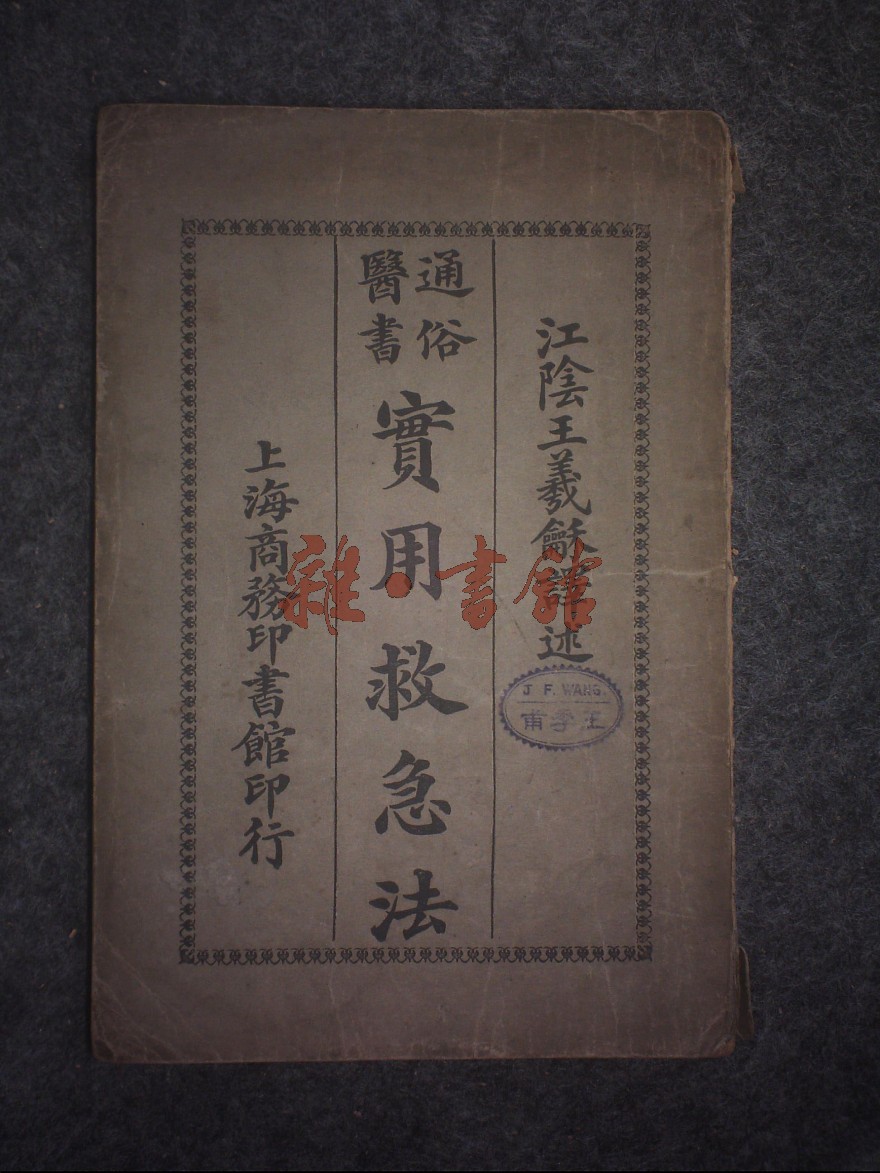 江陰王羲龢譯述
通俗
醫書
實用救急法
上海商務印書館印行
雜·書館
J. F. WANG.
王季甫